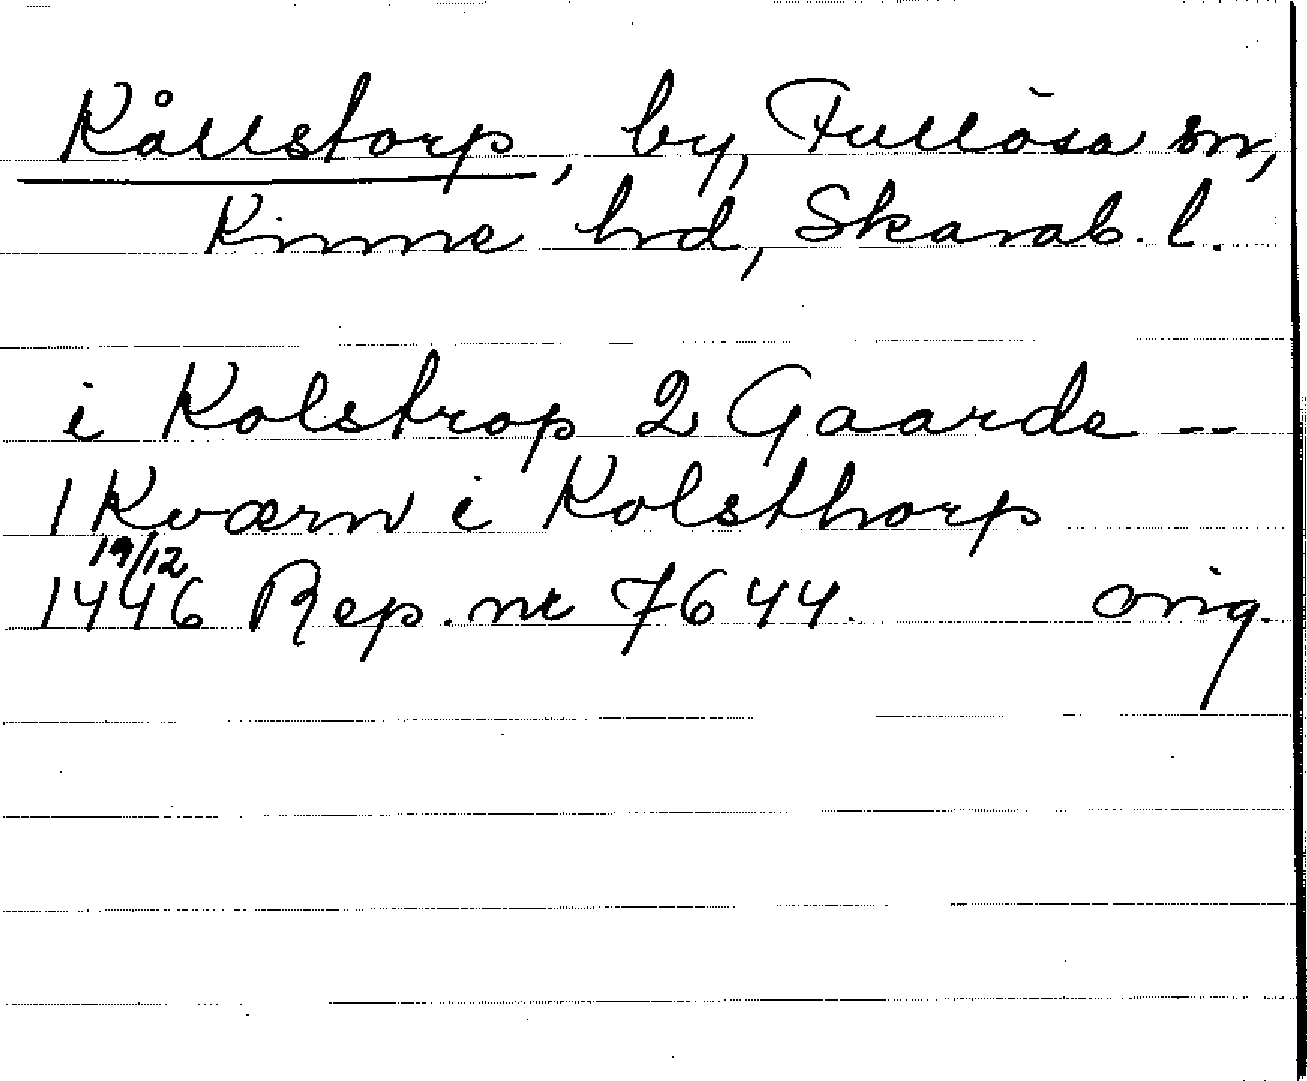 Kållstorp, by, Fullösa sn,
Kinne hrd, Skarab. l.
i Kolstrop 2 Gaarde --
1 Kværn i Kolsthorp
19/12
1446 Rep. nr 7644. orig.